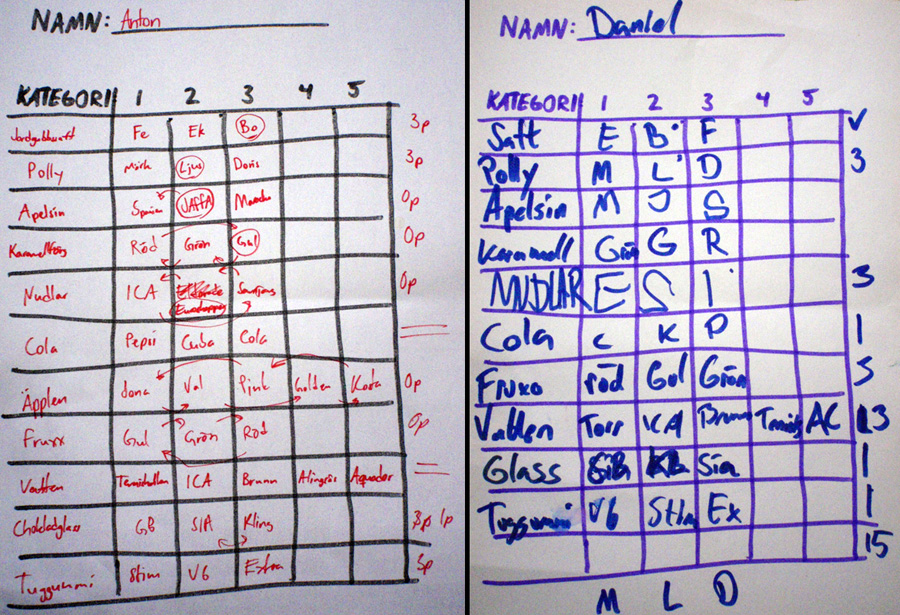 NAMN: Anton
KATEGORI 1 2 3 4 5
Jordgubbssaft Fe Ek Bo 3p
Polly Mörk Ljus Doris 3p
Apelsin Spanien JAFFA 0p
Karamellfärg Röd Grön Gul 0p
Nudlar ICA 0p
Cola Pepsi Cuba Cola
Äpplen Jona Val Pink Golden Koda 0p
Fruxx Gul Grön Röd 0p
Vatten Tennishallen ICA Brunn Alingsås Aquador
Chokladglass GB SIA Kling 1p
Tuggummi Stim V6 Extra 3p
NAMN: Daniel
KATEGORI 1 2 3 4 5
Saft E B F
Polly M L D 3
Apelsin M J S
Karamell Grön G R
NUDLAR E S I 3
Cola C K P 1
Fruxo röd Gul Grön
Vatten Torr ICA Brunn Tennis AC 13
Glass Sia 1
Tuggummi V6 Stim Ex 1
15
M L D